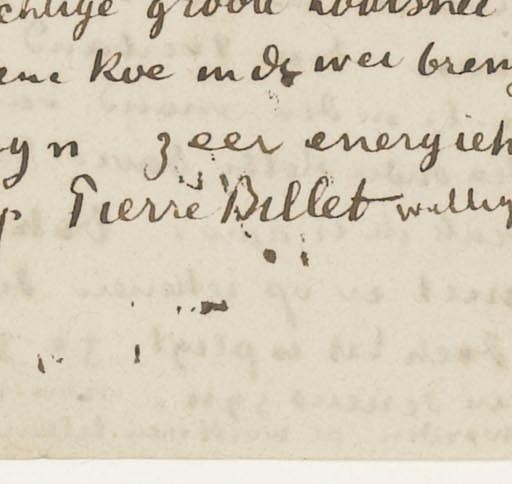 chtige groote houtsnee
eene koe in de wei breng
zyn zeer energiek
op Pierre Billet willig